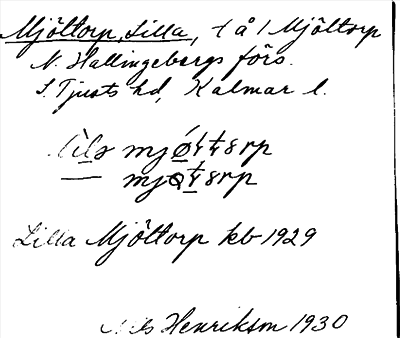 Mjöltorp, Lilla, t å 1 Mjöltorp
N. Hallingebergs förs.
S. Tjusts hd, Kalmar l.
mjø
mj
Lilla Mjöltorp kb 1929
Nils Henrikson 1930